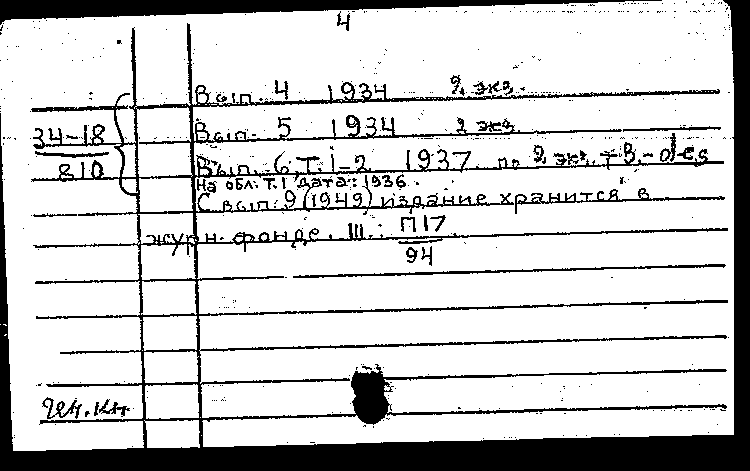 4
Вып. 4 1934 2 экз.
34-18
810
Вып. 5 1934 2 экз.
Вып. 6, Т. 1-2 1937 по 2 экз.
На обл. Т. 1 дата: 1936.
С вып. 9 (1949) издание хранится в
журн. фонде. Ш.: П17
94